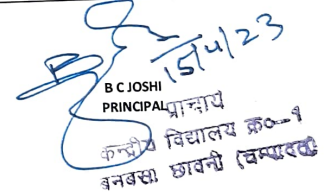 15/4/23
B C JOSHI
PRINCIPAL प्राचार्य
केन्द्रीय विद्यालय क्र०-1
बनबसा छावनी (चम्पावत)